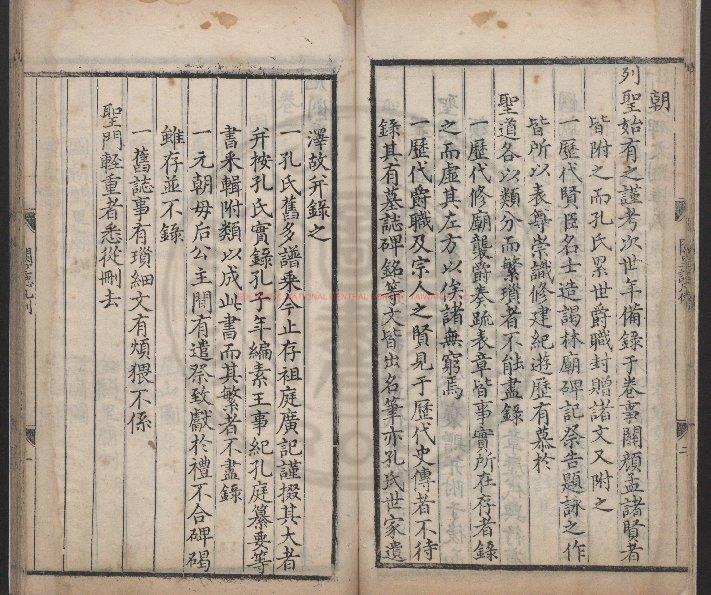 朝
列聖始有之謹考次世年備錄于卷事關顏孟諸賢者
皆附之而孔氏累世爵職封贈諸文又附之
一歷代賢臣名士造謁林廟碑記祭告題詠之作
皆所以表尊崇識修建紀遊歷有慕於
聖道各以類分而繁瑣者不能盡錄
一歷代修廟襲爵奏疏表章皆事實所在存者錄
之而虛其左方以俟諸無窮焉
一歷代爵職及宗人之賢見于歷代史傳者不待
錄其有墓誌碑銘等文皆出名筆亦孔氏世家遺
澤故并錄之
一孔氏舊多譜乘今止存祖庭廣記謹掇其大者
并按孔氏實錄孔子年編素王事紀孔庭纂要等
書釆輯附類以成此書而其繁者不盡錄
一元朝毋后公主間有遣祭致獻於禮不合碑碣
雖存並不錄
一舊誌事有瑣細文有煩猥不係
聖門輕重者悉從刪去